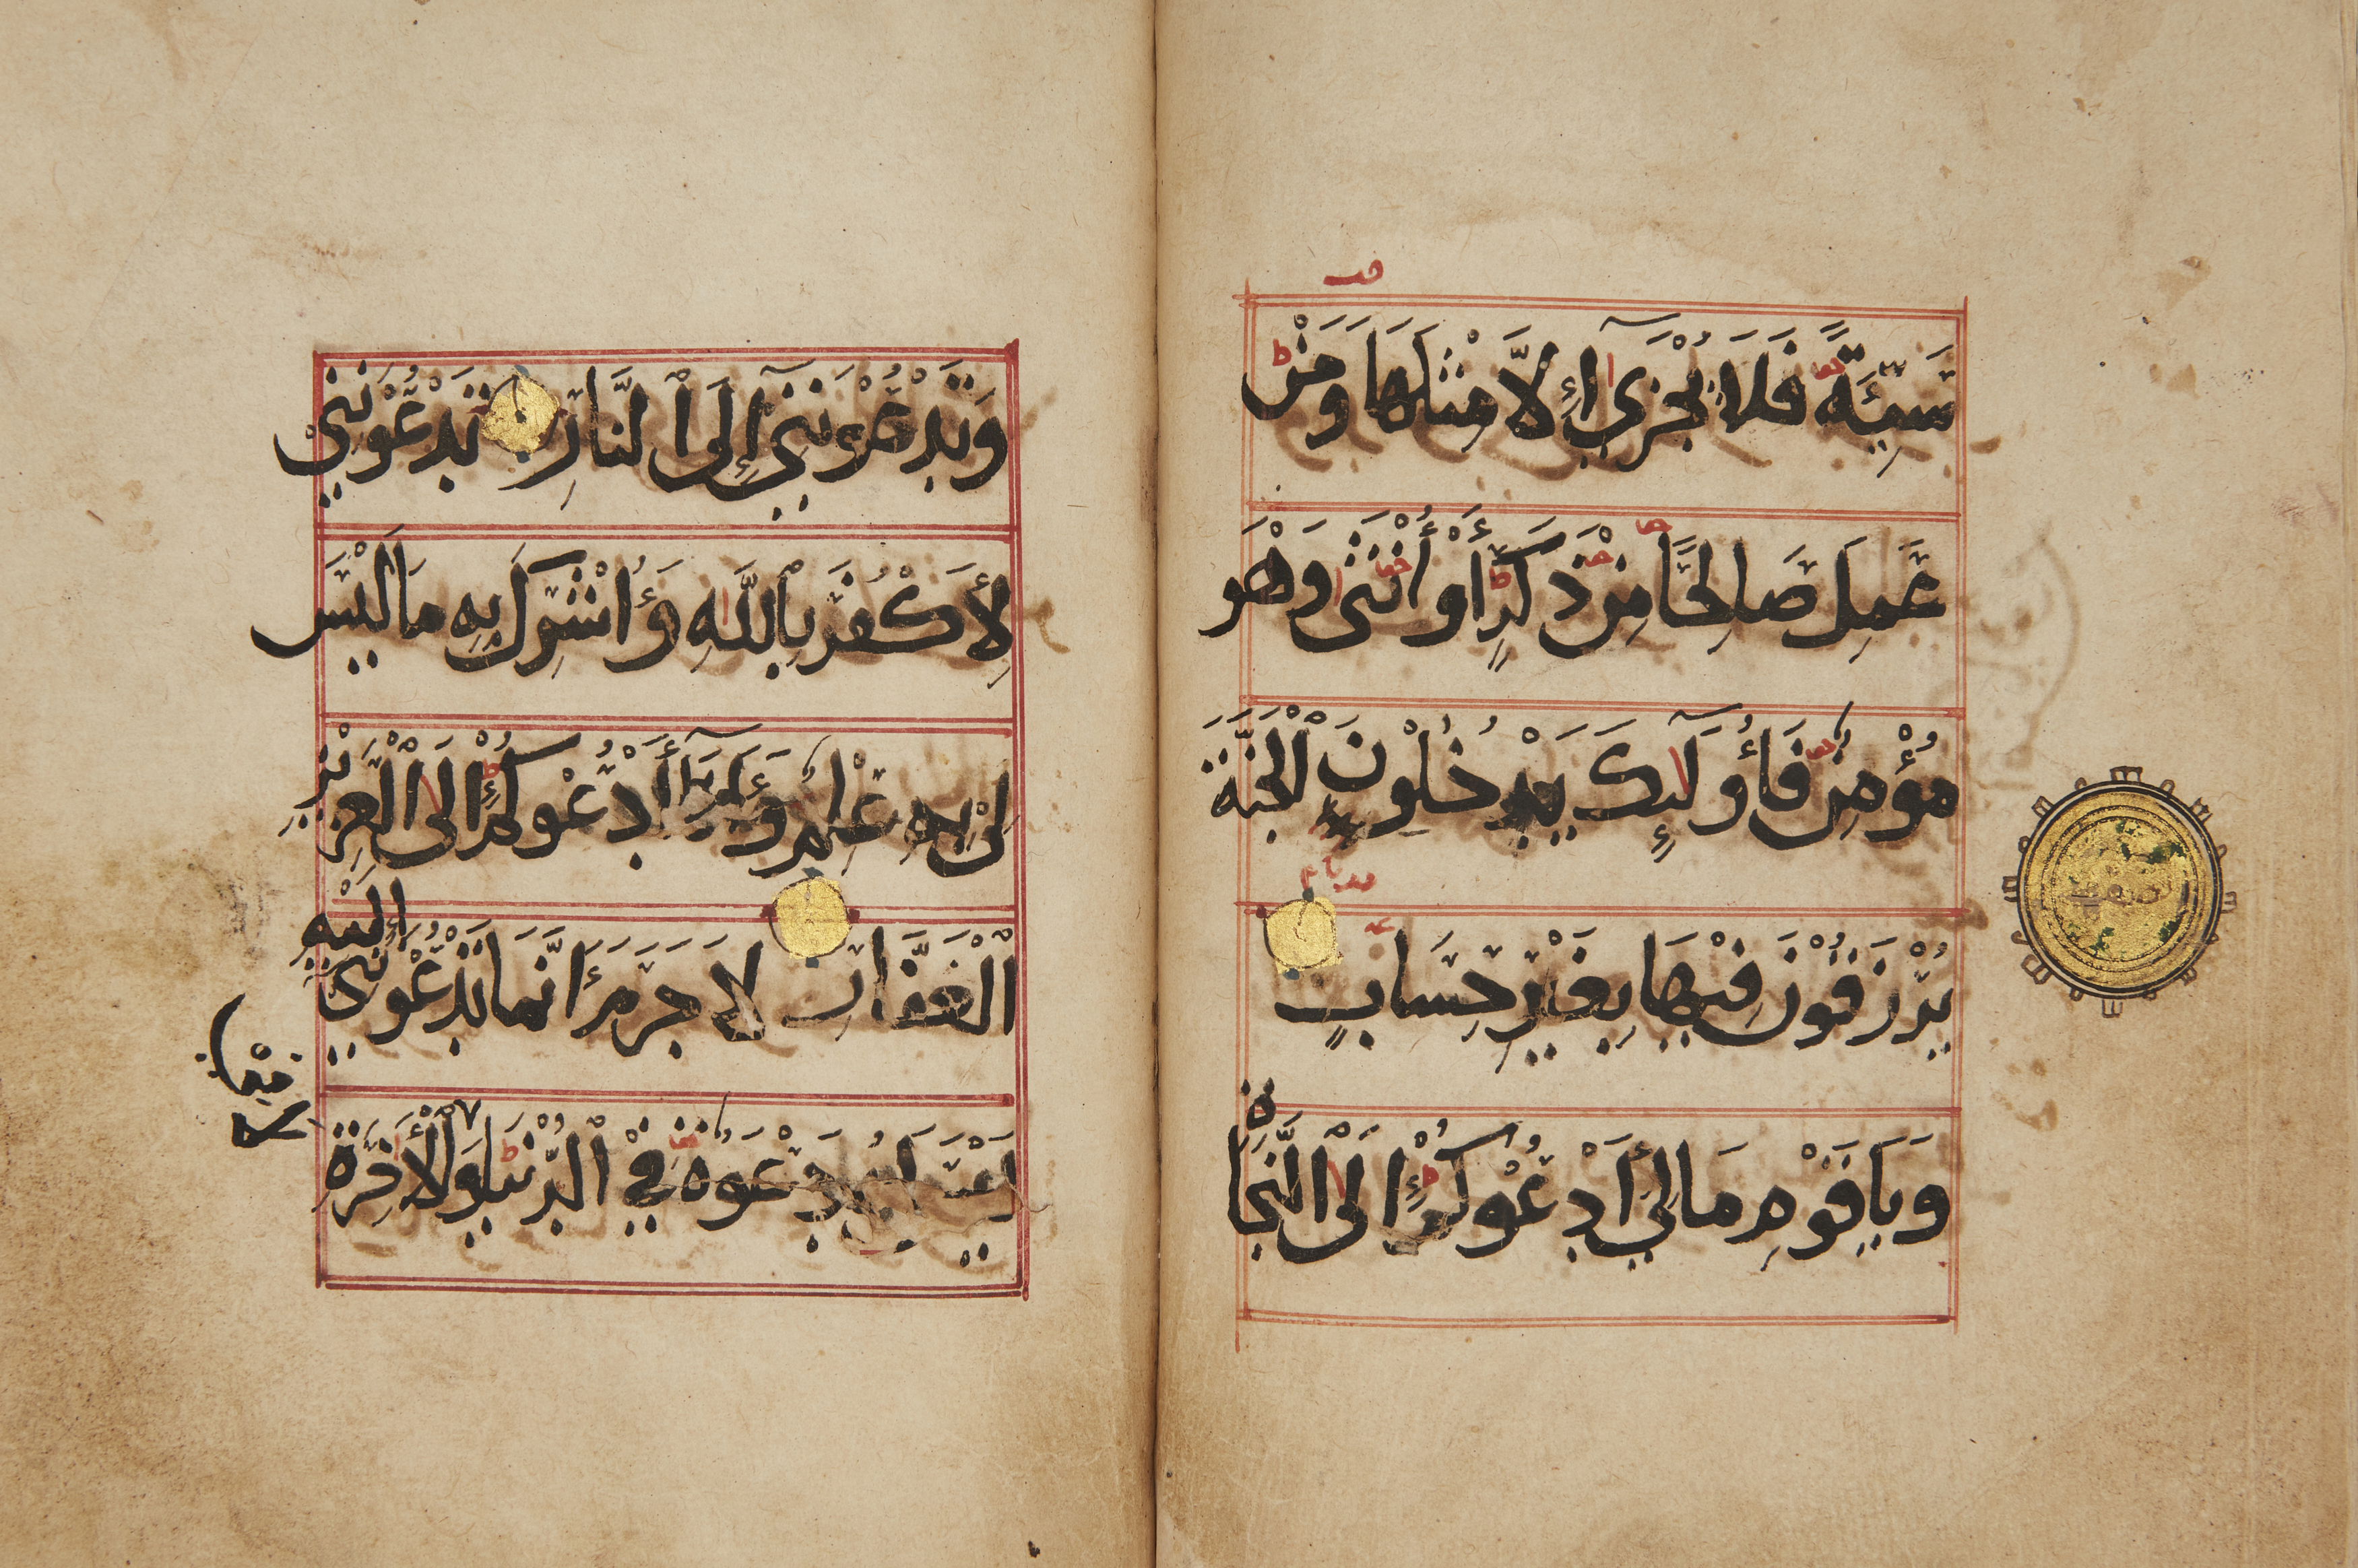 سَيِّئَةً فَلَا يُجْزَى إِلَّا مِثْلَهَا وَمَنْ
عَمِلَ صَالِحًا مِنْ ذَكَرٍ أَوْ أُنْثَى وَهْوَ
مُؤْمِنٌ فَأُولَئِكَ يَدْخُلُونَ الْجَنَّةَ
يُرْزَقُونَ فِيهَا بِغَيْرِ حِسَابٍ
وَيَا قَوْمِ مَا لِي أَدْعُوكُمْ إِلَى النَّجَاةِ
وَتَدْعُونَنِي إِلَى النَّارِ تَدْعُونَنِي
لِأَكْفُرَ بِاللَّهِ وَأُشْرِكَ بِهِ مَا لَيْسَ
لِي بِهِ عِلْمٌ وَأَنَا أَدْعُوكُمْ إِلَى الْعَزِيزِ
الْغَفَّارِ لَا جَرَمَ أَنَّمَا تَدْعُونَنِي إِلَيْهِ
لَيْسَ لَهُ دَعْوَةٌ فِي الدُّنْيَا وَلَا فِي الْآخِرَةِ